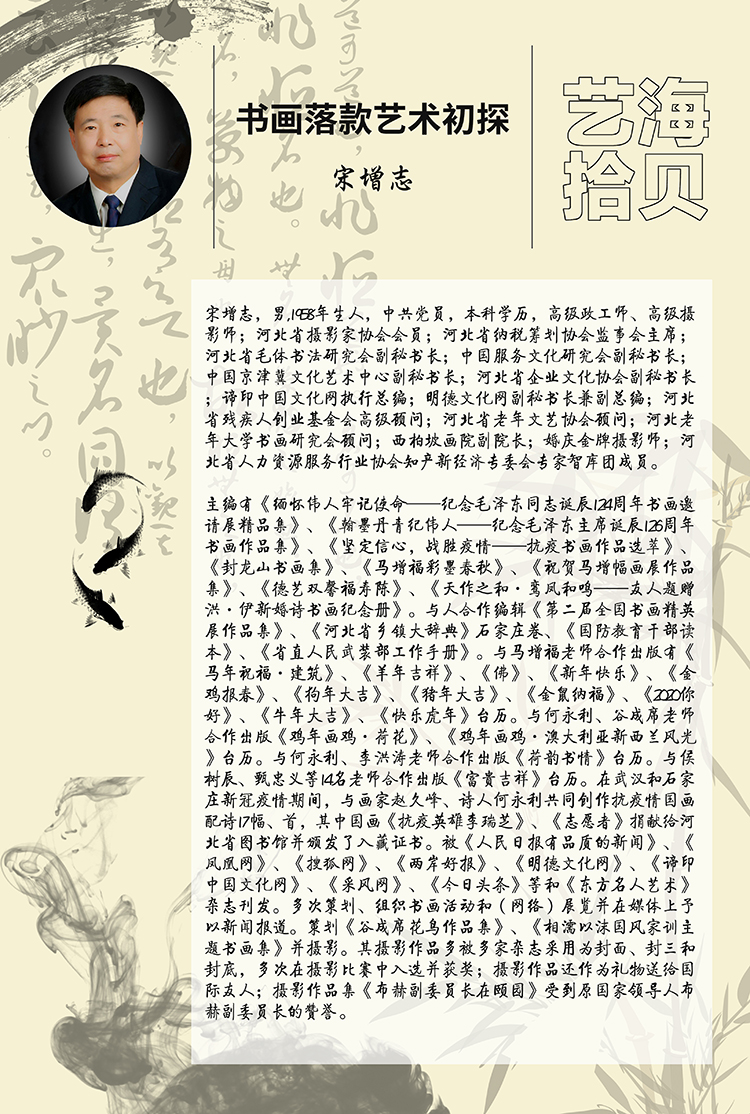 书画落款艺术初探
宋增志
艺海
拾贝
宋增志，男，1958年生人，中共党员，本科学历，高级政工师、高级摄
影师；河北省摄影家协会会员；河北省纳税筹划协会监事会主席；
河北省毛体书法研究会副秘书长；中国服务文化研究会副秘书长；
中国京津冀文化艺术中心副秘书长；河北省企业文化协会副秘书长
；谛印中国文化网执行总编；明德文化网副秘书长兼副总编；河北
省残疾人创业基金会高级顾问；河北省老年文艺协会顾问；河北老
年大学书画研究会顾问；西柏坡画院副院长；婚庆金牌摄影师；河
北省人力资源服务行业协会知产新经济专委会专家智库团成员。
主编有《缅怀伟人牢记使命——纪念毛泽东同志诞辰124周年书画邀
请展精品集》、《翰墨丹青纪伟人——纪念毛泽东主席诞辰126周年
书画作品集》、《坚定信心，战胜疫情——抗疫书画作品选萃》、
《封龙山书画集》、《马增福彩墨春秋》、《祝贺马增幅画展作品
集》、《德艺双馨福寿陈》、《天作之和·鸾凤和鸣——友人题赠
洪·伊新婚诗书画纪念册》。与人合作编辑《第二届全国书画精英
展作品集》、《河北省乡镇大辞典》石家庄卷、《国防教育干部读
本》、《省直人民武装部工作手册》。与马增福老师合作出版有《
马年祝福·建筑》、《羊年吉祥》、《佛》、《新年快乐》、《金
鸡报春》、《狗年大吉》、《猪年大吉》、《金鼠纳福》、《2020你
好》、《牛年大吉》、《快乐虎年》台历。与何永利、谷成席老师
合作出版《鸡年画鸡·荷花》、《鸡年画鸡·澳大利亚新西兰风光
》台历。与何永利、李洪涛老师合作出版《荷韵书情》台历。与侯
树辰、甄忠义等14名老师合作出版《富贵吉祥》台历。在武汉和石家
庄新冠疫情期间，与画家赵久峰、诗人何永利共同创作抗疫情国画
配诗17幅、首，其中国画《抗疫英雄李瑞芝》、《志愿者》捐献给河
北省图书馆并颁发了入藏证书。被《人民日报有品质的新闻》、《
凤凰网》、《搜狐网》、《两岸好报》、《明德文化网》、《谛印
中国文化网》、《采风网》、《今日头条》等和《东方名人艺术》
杂志刊发。多次策划、组织书画活动和（网络）展览并在媒体上予
以新闻报道。策划《谷成席花鸟作品集》、《相濡以沫国风家训主
题书画集》并摄影。其摄影作品多被多家杂志采用为封面、封三和
封底，多次在摄影比赛中入选并获奖；摄影作品还作为礼物送给国
际友人；摄影作品集《布赫副委员长在颐园》受到原国家领导人布
赫副委员长的赞誉。